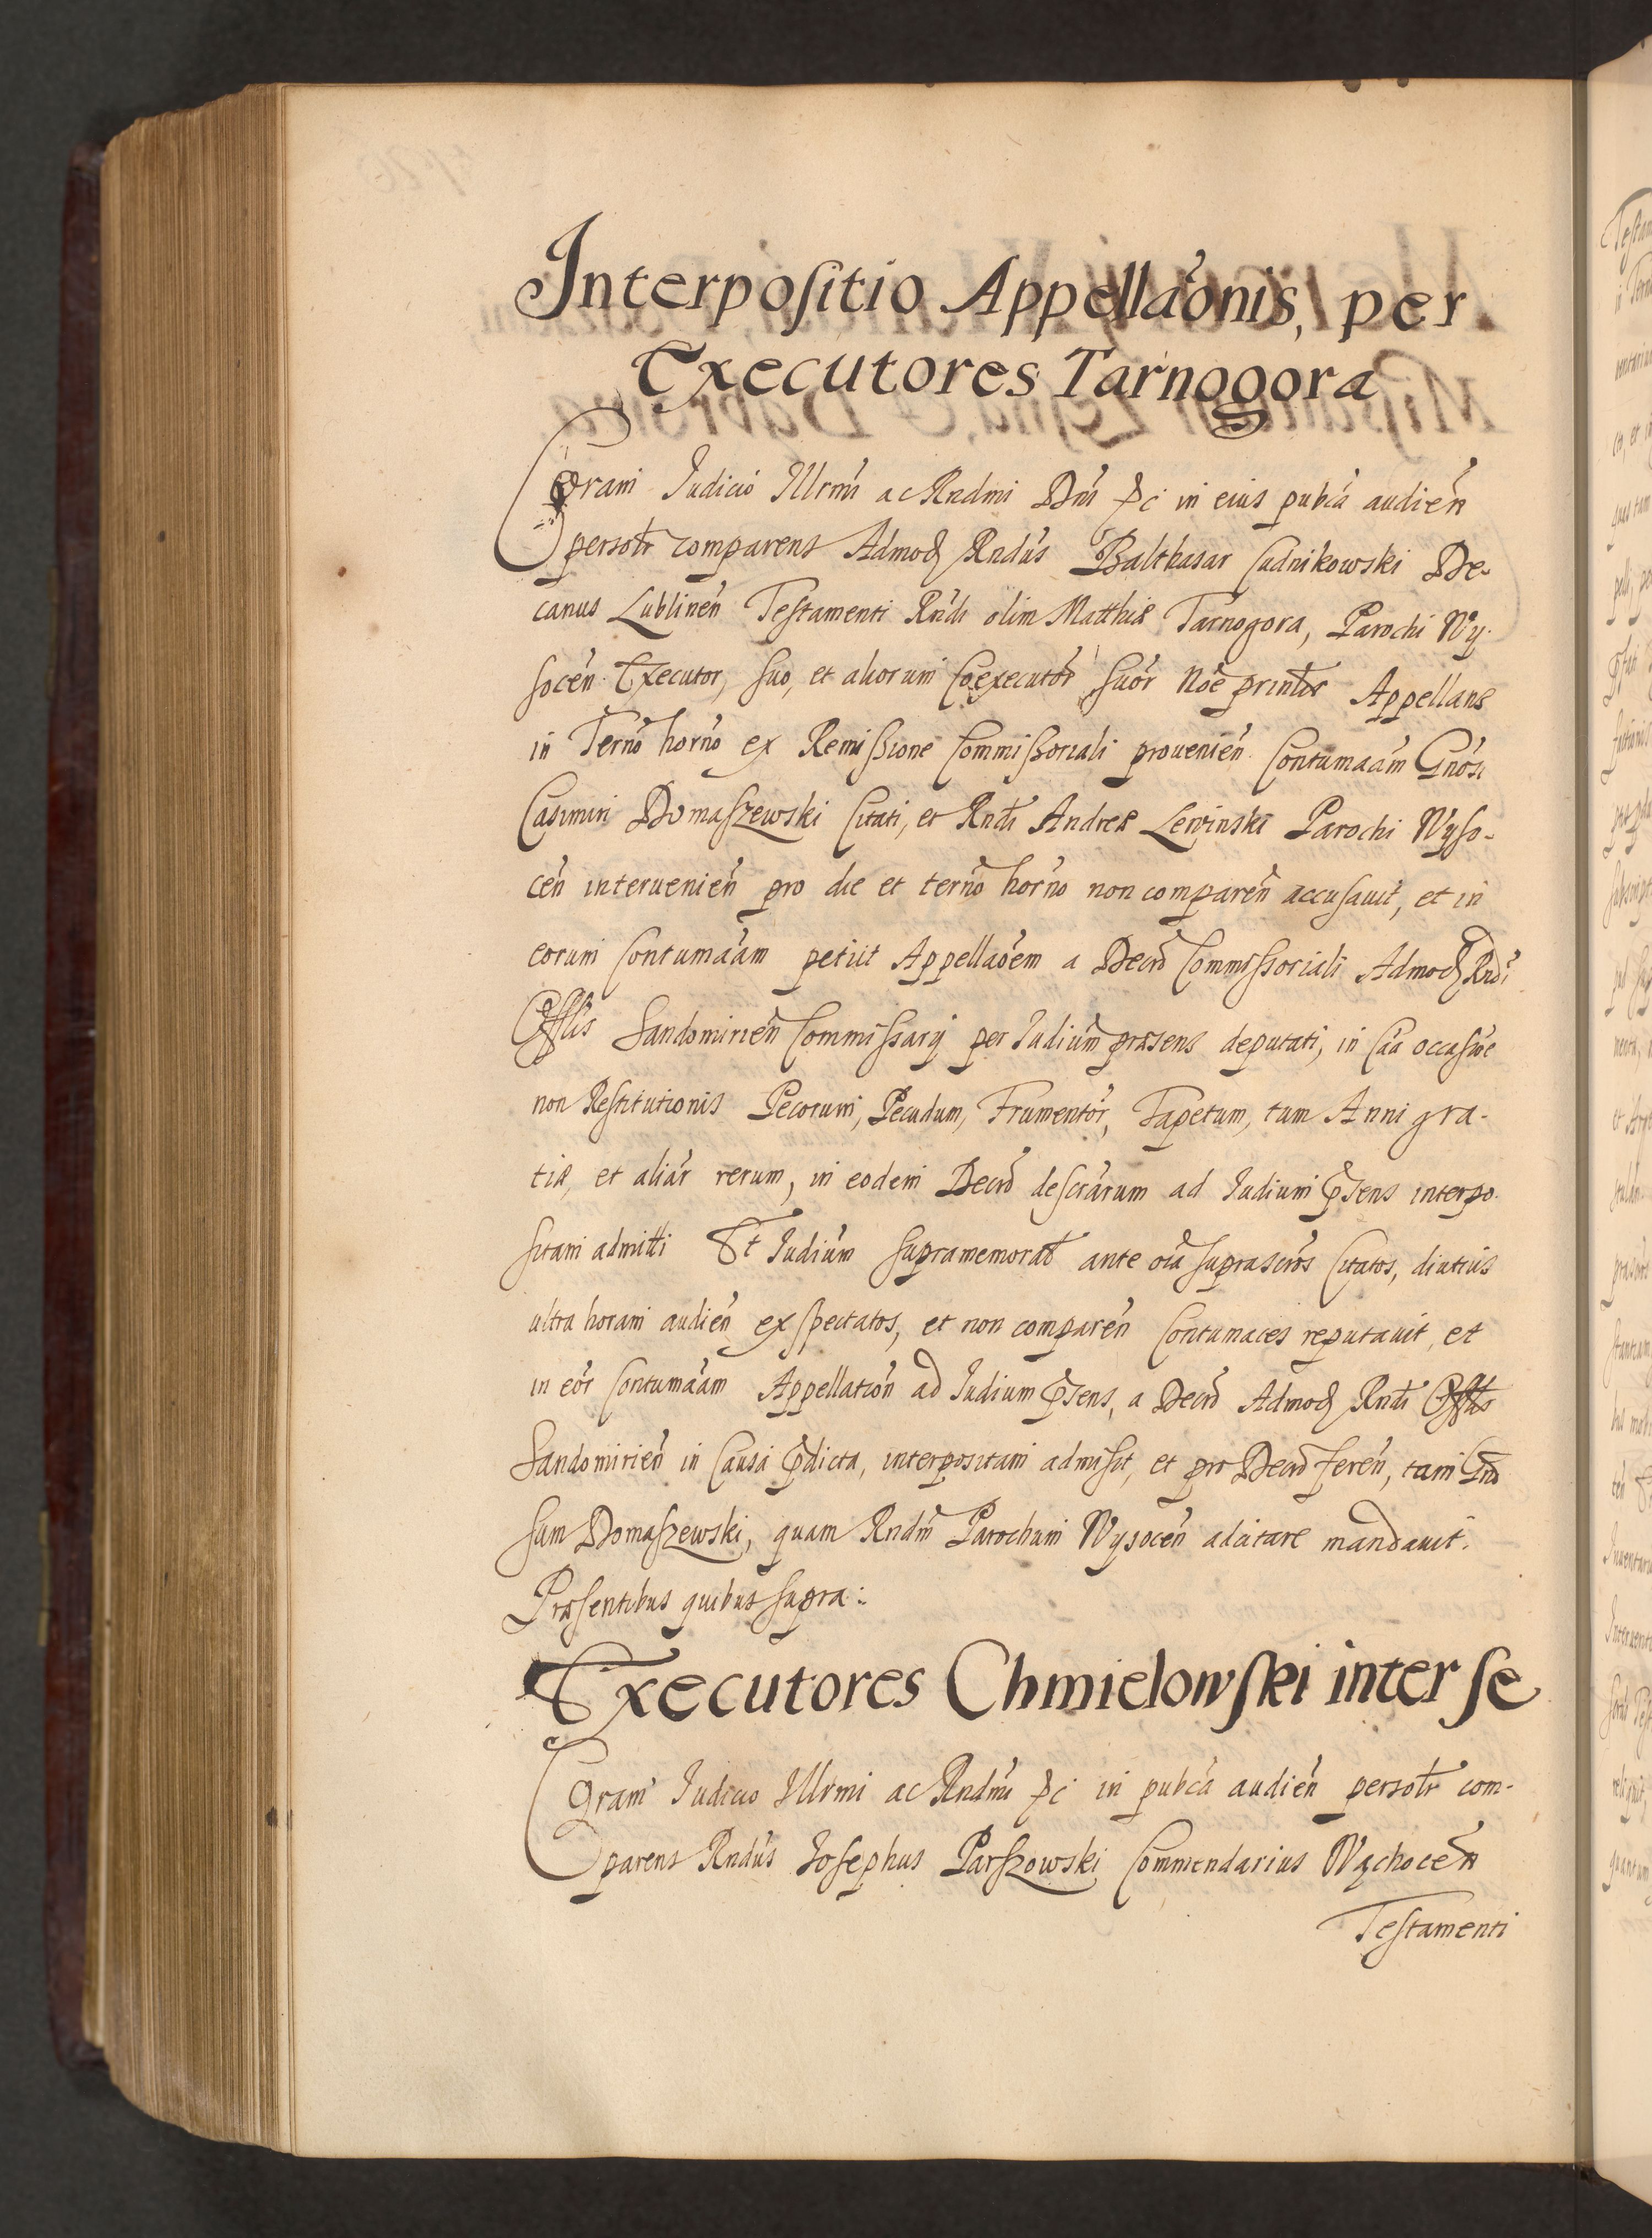 Interpositio Appellaōnis, per
Executores Tarnogora
Coram Iudicio Illrmi ac Rndmi Dni &c in eius pubca audien
persolr comparens Admod Rndus Balthasar Cudnikowski De-
canus Lublinen Testamenti Rndi olim Matthiæ Tarnogora, Parochi Wy-
socen Executor, suo, et aliorum Coexecutor suor Noe prinlr Appellans
in Terno horno ex Remissione Commissoriali prouenien Contumaam Gnosi
Casimiri Domaszewski Citati, et Rndi Andreæ Lewinski Parochi Wyso-
cen interuenien pro die et terno horno non comparen accusauit, et in
eorum Contumaam petiit Appellaoem a Decro Commissoriali Admod Rndi
Offlis Sandomirien Commissarij per Iudium præsens deputati, in Caa occasioe
non Restitutionis Pecorum, Pecudum, Frumentor, Tapetum, tum Anni gra-
tiæ, et aliar rerum, in eodem Decro descrarum ad Iudium psens interpo-
sitam admitti Et Iudium supramemorat ante oia suprascros Citatos, diutius
ultra horam audien exspectatos, et non comparen Contumaces reputauit, et
in eor Contumaam Appellation ad Iudium psens, a Decro Admod Rndi Offlis
Sandomirien in Causa pdicta, interpositam admisit, et pro Decro feren, tam Gno
sum Domaszewski, quam Rndm Parochum Wysocen adcitare mandauit.
Præsentibus quibus supra:
Executores Chmielowski inter se
Coram Iudicio Illrmi ac Rndmi &c in pubca audien persolr com-
parens Rndus Iosephus Parszowski Commendarius Wąchocen
Testamenti